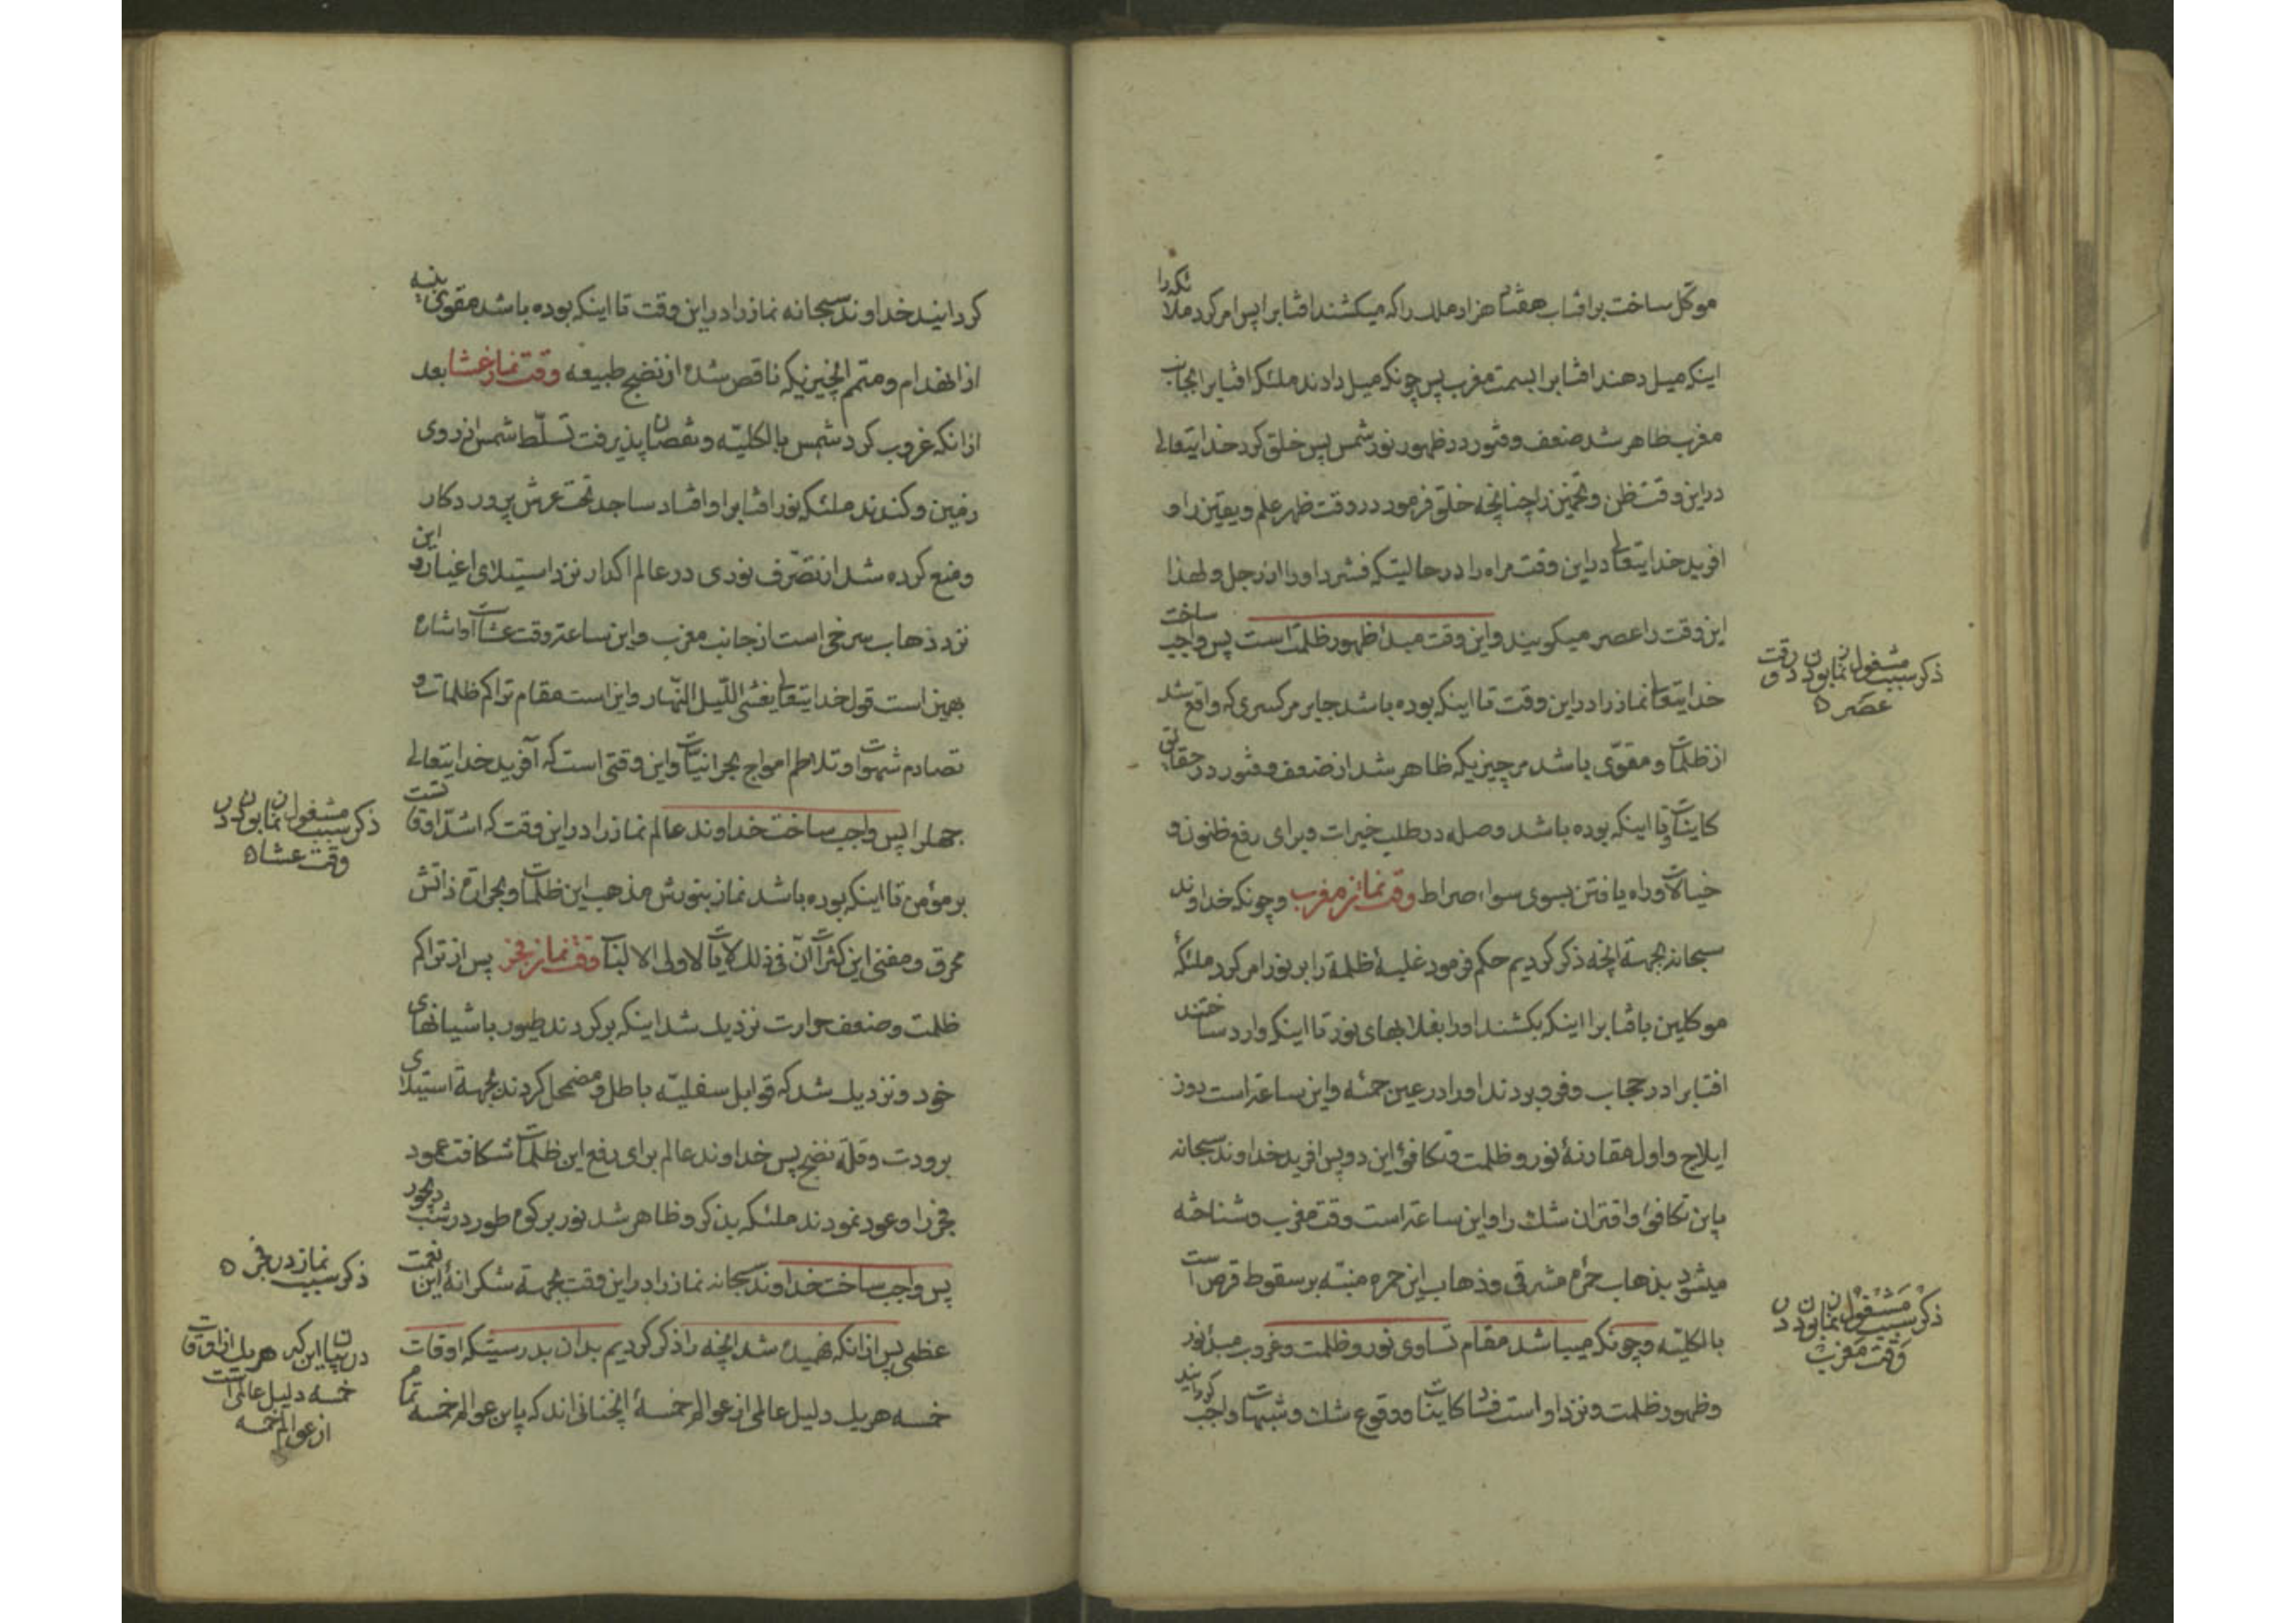 موکل ساخت برافتاب هفتاد هزار ملک را که میکشند افتابرا پس امر کرد ملائکه را
اینکه میل دهند افتابرا بسمت مغرب پس چونکه میل دادند ملئکه افتابرا بجانب
مغرب ظاهر شد ضعف و فتور در ظهور نور شمس پس خلق کرد خدایتعالی
در این وقت ظن و تخمین را چنانچه خلق فرمود در وقت ظهر علم و یقین را و
افرید خدایتعالی در این وقت مراه را در حالیتکه فشرد او را از رجل و لهذا
این وقت را عصر میکویند و این وقت مبدأ ظهور ظلمت است پس واجب ساخت
خدایتعالی نماز را در این وقت تا اینکه بوده باشد جابر مر کسری که واقع شد
از ظلمات و مقوّی باشد مر چیزیکه ظاهر شد از ضعف و فتور در حقایق
کاینات و تا اینکه بوده باشد وصله در طلب خیرات و برای رفع ظنون و
خیالات و راه یافتن بسوی سواء صراط وقت نماز مغرب و چونکه خداوند
سبحانه بجهة انچه ذکر کردیم حکم فرمود غلبهٔ ظلمة را بر نور امر کرد ملئکهٔ
موکلین بافتابرا اینکه بکشند او را بقلابهای نور تا اینکه وارد ساختند
افتابرا در حجاب و فرو بردند او را در عین حمئه و این ساعة است روز
ایلاج و اول مقارنهٔ نور و ظلمت و تکافئ این دو پس افرید خداوند سبحانه
باین تکافئ و اقتران شک را و این ساعة است وقت مغرب و شناخته
میشود بذهاب حمرهٔ مشرقی و ذهاب این حمره منبّه بر سقوط قرص است
بالکلیّه و چونکه میباشد مقام تساوی نور و ظلمت و غروب مبدأ نور
و ظهور ظلمت و نزد او است فساد کاینات و وقوع شک و شبهات واجب کردانید
ذکر سبب مشغول نماز بودن در وقت
عصر
ذکر سبب مشغول نماز بودن در
وقت مغرب
کردانید خداوند سبحانه نماز را در این وقت تا اینکه بوده باشد مقوی بنیه
از انهدام و متمم انچیزیکه ناقص شده از نضج طبیعه وقت نماز عشا بعد
از انکه غروب کرد شمس بالکلیّه و نقصان پذیرفت تسلّط شمس از روی
زمین و کندند ملئکه نور افتابرا و افتاد ساجد تحت عرش پروردکار
و منع کرده شد از تصّرف نوری در عالم اکدار نزد استیلای اغیار و این
نزد ذهاب سرخی است از جانب مغرب و این ساعة وقت عشاست و اشاره
بهمین است قول خدایتعالی یغشی اللّیل النّهار و این است مقام تراکم ظلمات و
تصادم شهوات و تلاطم امواج بحر انیّات و این وقتی است که آفرید خدایتعالی
جهل را پس واجب ساخت خداوند عالم نماز را در این وقت که اشدّ اوقات است
بر مؤمن تا اینکه بوده باشد نماز بنورش مذهب این ظلمات و بحرارة ذاتش
محرق و مفنی این کثرات انّ فی ذلک لایات لاولی الالباب وقت نماز فجر پس از تراکم
ظلمت و ضعف حرارت نزدیک شد اینکه برکردند طیور باشیانهای
خود و نزدیک شد که قوابل سفلیّه باطل و مضمحل کردند بجهة استیلای
برودت و قلّه نضج پس خداوند عالم برای رفع این ظلمات شکافت عمود
فجر را و عود نمودند ملئکه بذکر و ظاهر شد نور بر کوه طور در شب دیجور
پس واجب ساخت خداوند سبحانه نماز را در این وقت بجهة شکرانهٔ این نعمت
عظمی پس از انکه فهمیده شد انچه را ذکر کردیم بدان بدرستیکه اوقات
خمسه هریک دلیل عالمی از عوالم خمسهٔ انچنانی اند که باین عوالم خمسه تمام
ذکر سبب مشغول نماز بودن در
وقت عشا
ذکر سبب نماز در فجر
در بیان این که هریک از اوقات
خمسه دلیل عالمی است
از عوالم خمسه